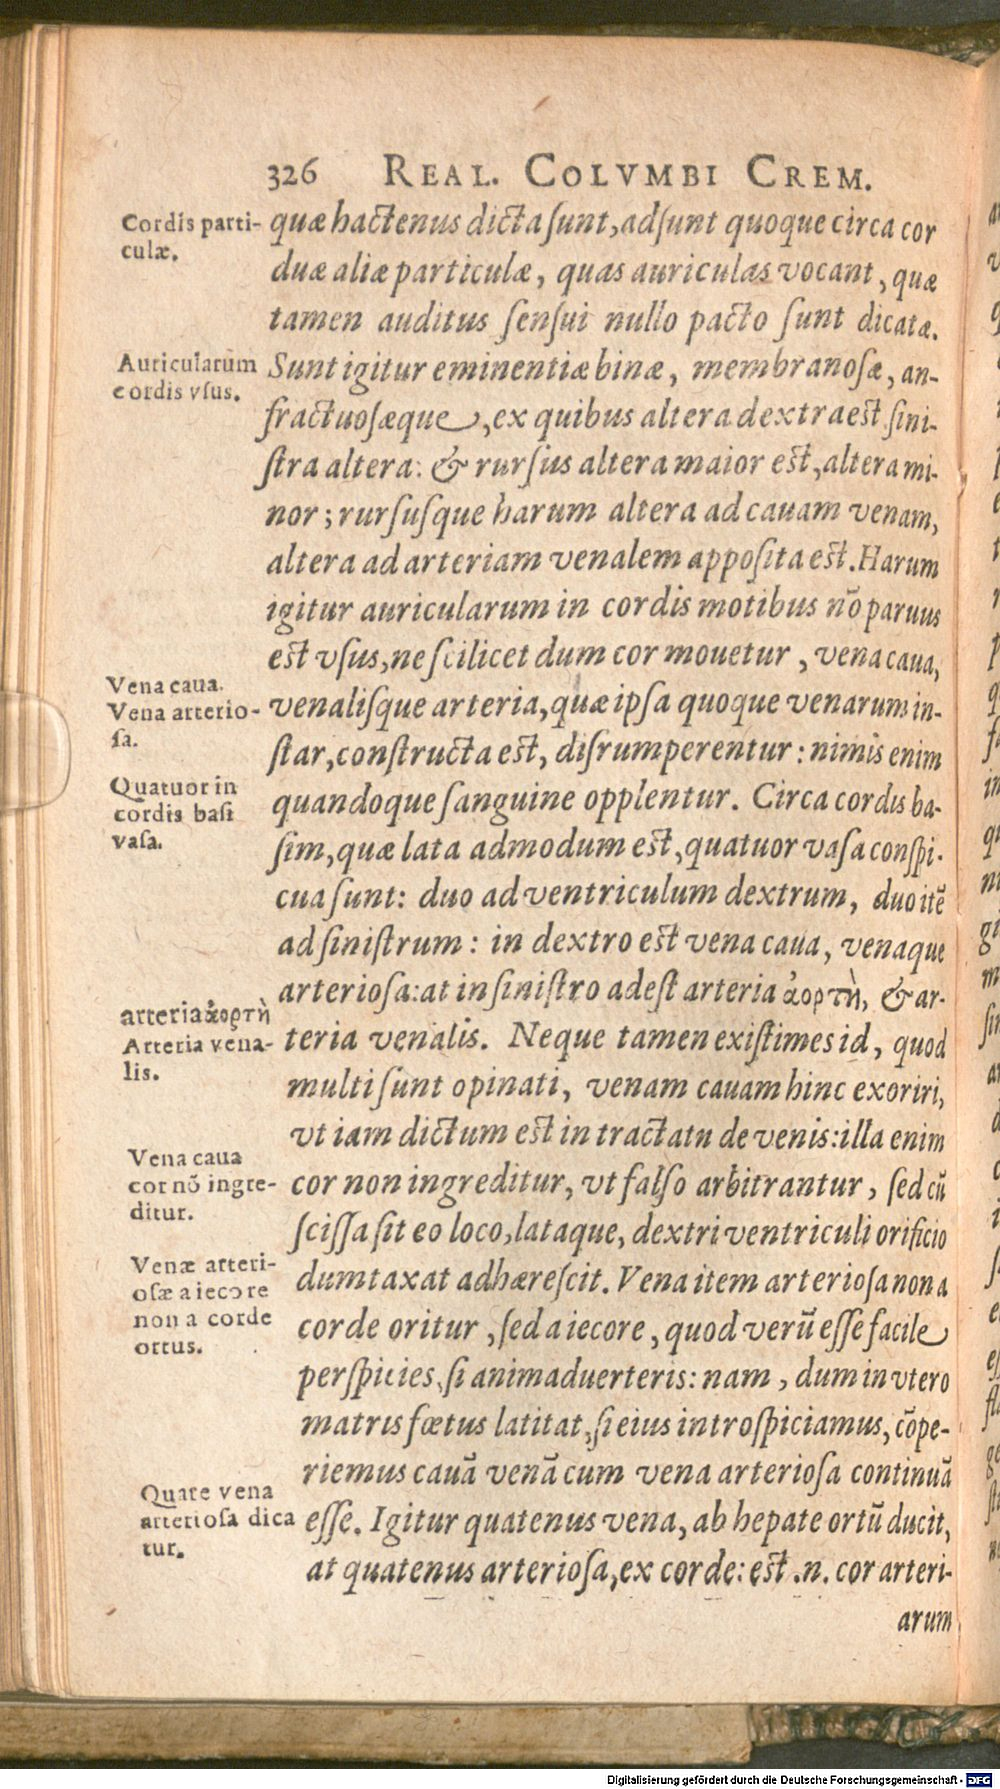 326 REAL. COLVMBI CREM.
Cordis parti-
culæ.
quæ hactenus dicta sunt, adsunt quoque circa cor
duæ aliæ particulæ, quas auriculas vocant, quæ
tamen auditus sensui nullo pacto sunt dicatæ.
Auricularum
cordis vsus.
Sunt igitur eminentiæ binæ, membranosæ, an-
fractuosæque, ex quibus altera dextra est sini-
stra altera: & rursus altera maior est, altera mi-
nor; rursusque harum altera ad cauam venam,
altera ad arteriam venalem apposita est. Harum
igitur auricularum in cordis motibus nō paruus
est vsus, ne scilicet dum cor mouetur, vena caua,
Vena caua.
Vena arterio-
sa.
venalisque arteria, quæ ipsa quoque venarum in-
star, constructa est, disrumperentur: nimis enim
Quatuor in
cordis basi
vasa.
quandoque sanguine opplentur. Circa cordis ba-
sim, quæ lata admodum est, quatuor vasa conspi-
cua sunt: duo ad ventriculum dextrum, duo itē
ad sinistrum: in dextro est vena caua, venaque
arteriosa: at in sinistro adest arteria ἀορτὴ, & ar-
arteria ἀορτὴ
Arteria vena-
lis.
teria venalis. Neque tamen existimes id, quod
multi sunt opinati, venam cauam hinc exoriri,
vt iam dictum est in tractatu de venis: illa enim
Vena caua
cor nō ingre-
ditur.
cor non ingreditur, vt falso arbitrantur, sed cū
scissa sit eo loco, lataque, dextri ventriculi orificio
Venæ arteri-
osæ a iecore
non a corde
ortus.
dumtaxat adhærescit. Vena item arteriosa non a
corde oritur, sed a iecore, quod verū esse facile
perspicies, si animaduerteris: nam, dum in vtero
matris fœtus latitat, si eius introspiciamus, cōpe-
riemus cauā venā cum vena arteriosa continuā
Quare vena
arteriosa dica
tur.
esse. Igitur quatenus vena, ab hepate ortū ducit,
at quatenus arteriosa, ex corde: est .n. cor arteri-
arum
Digitalisierung gefördert durch die Deutsche Forschungsgemeinschaft - DFG